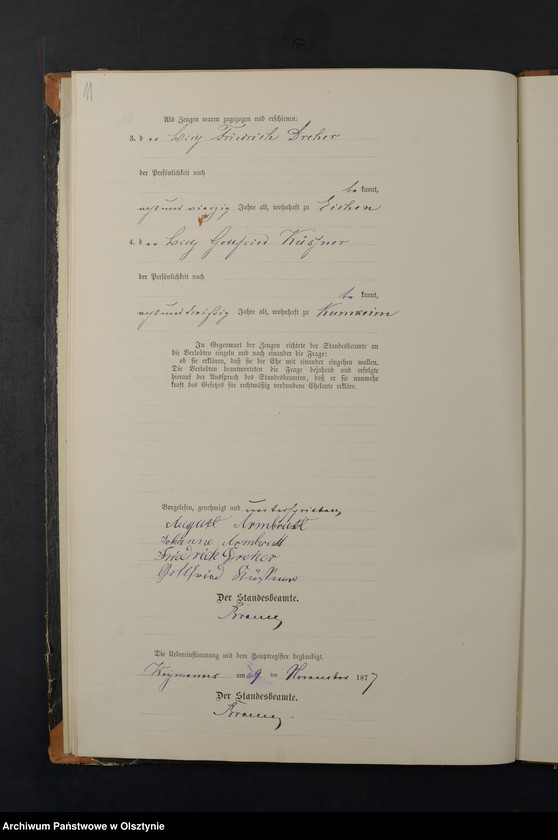 11
Als Zeugen waren zugezogen und erschienen:
3. d er Wirth Friedrich Dreher
der Persönlichkeit nach
be kannt,
acht und vierzig Jahre alt, wohnhaft zu Eichen
4. d er Wirth Gottfried Küssner
der Persönlichkeit nach
be kannt,
acht und dreißig Jahre alt, wohnhaft zu Kumkeim
In Gegenwart der Zeugen richtete der Standesbeamte an
die Verlobten einzeln und nach einander die Frage:
ob sie erklären, daß sie die Ehe mit einander eingehen wollen.
Die Verlobten beantworteten die Frage bejahend und erfolgte
hierauf der Ausspruch des Standesbeamten, daß er sie nunmehr
kraft des Gesetzes für rechtmäßig verbundene Eheleute erkläre.
Vorgelesen, genehmigt und unterschrieben
August Armbrust
Johanne Armbrust
Friedrich Dreher
Gottfried Küssner
Der Standesbeamte.
Die Uebereinstimmung mit dem Hauptregister beglaubigt.
am 9 ten November 1877
Der Standesbeamte.
Archiwum Państwowe w Olsztynie